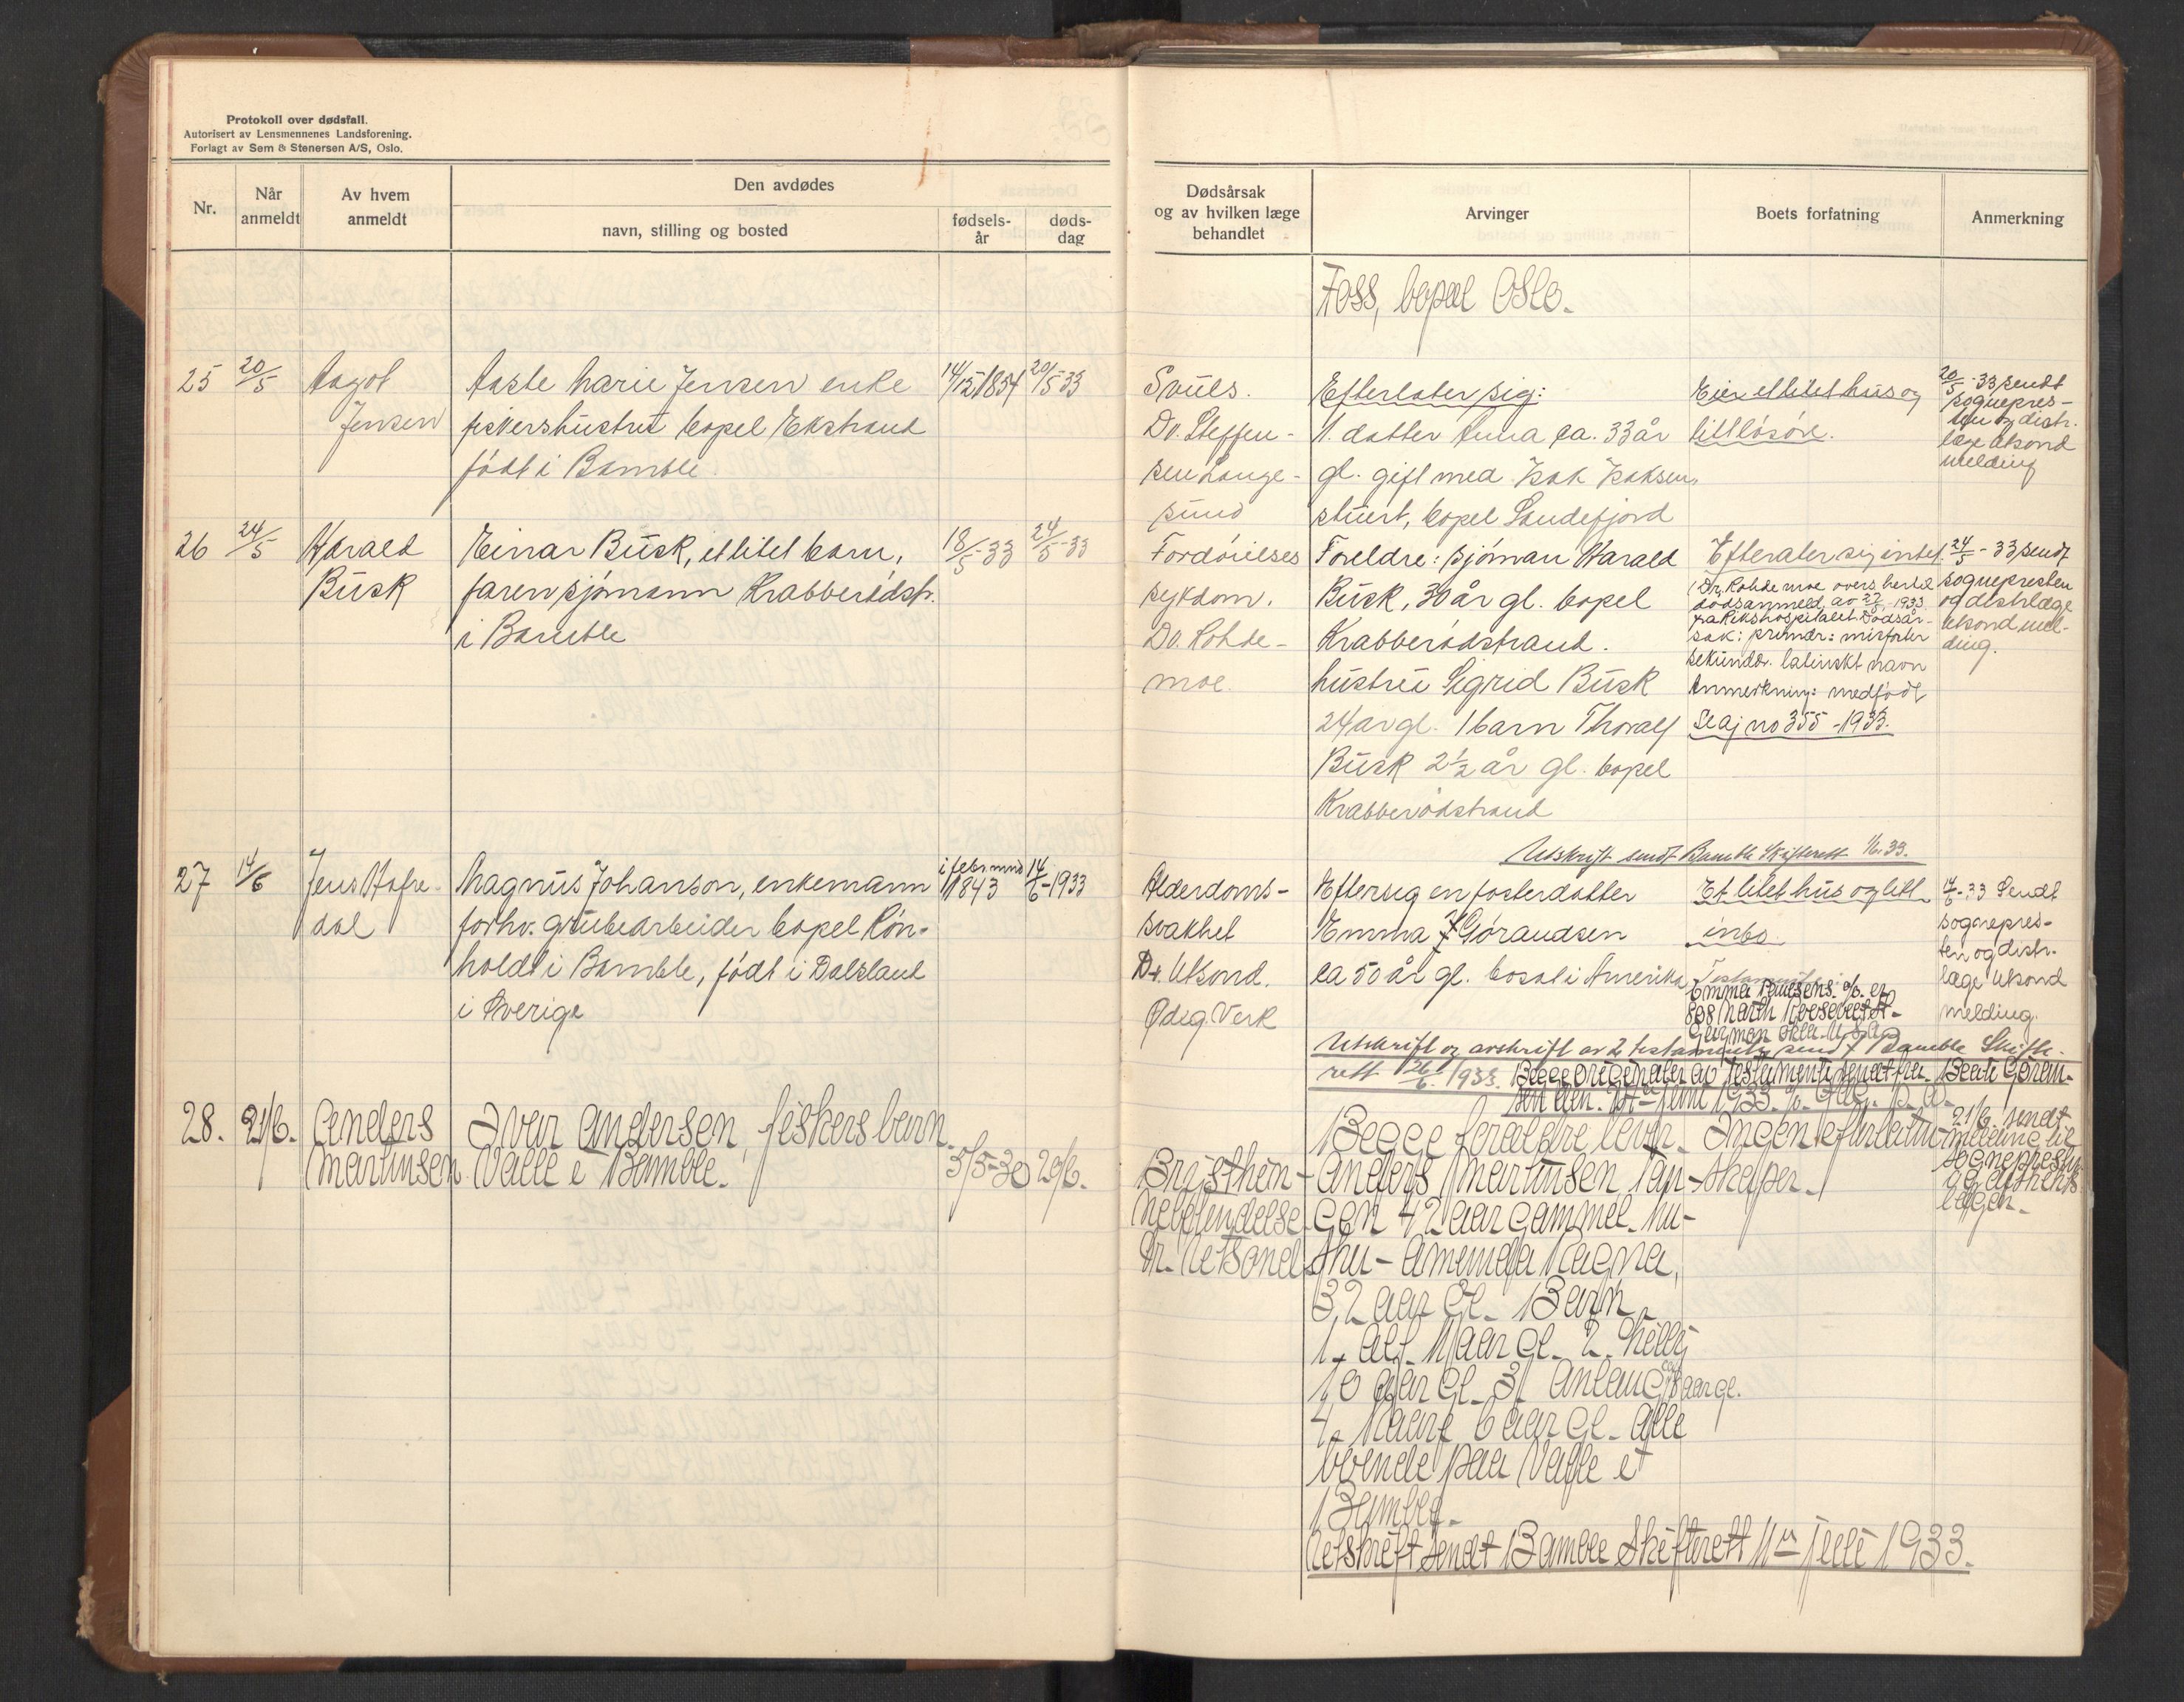 Protokoll over dødsfall.
Autorisert av Lensmennenes Landsforening.
Forlagt av Sem & Stenersen A/S, Oslo.
Nr.
Når anmeldt
Av hvem anmeldt
Den avdødes
navn, stilling og bosted
fødsels-år
døds-dag
25 20/5 Aagot
Jensen
Aaste Marie Jensen enke
fiskershustru bopel Ekstrand
født i Bamble.
14/12 1854 20/5-33
26 24/5 Harald
Busk
Einar Busk, et litet barn,
faren sjømann Krabberødstr.
i Bamble
18/5-33 24/5-33
27 14/6 Jens Hafre-
dal
Magnus Johanson, enkemann
forhv. grubearbeider bopel Røn-
holdt i Bamble, født i Dalsland
i Sverige
i febr mnd
1843 14/6-1933
28. 21/6. Anders
Martinsen.
Ivar Andersen, fiskers barn.
Valle i Bamble.
5/5-30 20/6.
Dødsårsak
og av hvilken læge
behandlet
Arvinger
Boets forfatning
Anmerkning
Foss, bopæl Oslo.
Svuls.
Dr. Steffen-
sen Lange-
sund
Efterlater sig:
1. datter Anna ca. 33 år
gl. gift med Isak Isaksen,
stuert, bopel Sandefjord
Eier et litet hus og
litt løsøre.
20/5-33 sendt
sognepres-
ten og distr.
læge Utsond
melding
Fordøielses
sykdom.
Dr. Rohde-
moe.
Foreldre: sjøman Harald
Busk, 30 år gl. bopel
Krabberødstrand.
hustru Sigrid Busk
24 år gl. 1 barn Thoralf
Busk 2½ år gl. bopel
Krabberødstrand
Efterlater sig intet.
(Dr. Rohde moe overs. hertil
dødsanmeld. av 27/5 1933
fra Rikshospitalet Dødsår-
sak: primær: misfoster
sekundær. latinskt navn
Anmerkning: medfødt
Se aj no 355-1933.
24/5-33 sendt
sognepresten
og distrlæge
Utsond mel-
ding.
Utskrift sendt Bamble Skifterett 1/6.33.
Alderdoms-
svakhet
Dr. Utsond.
Ødeg. Verk
Eftersig en fosterdatter
Emma Gørandsen
ca 50 år gl. bosat i Amerika
Et litet hus og litt
inbo.
Emma Paulsens a/s. er
808 North Roosevelt St-
14/6-33 Sendt
sognepres-
ten og distr-
læge Utsond
melding.
Utskrift og avskrift av 2 testamenter sendt Bamble Skifte-
rett 26/6. 1933. Begge originaler av Testamenti sendt fra Beate Gøran-
Begge foreldre lever. Ingen efterlaten-
Brysthin-
nebetendelse
Dr. Utsond
Anders Martinsen,
gen 42 aar gammel. hu-
stru- Amunda Ragna,
32 aar gl. Barn.
1. Alf. 11 aar gl. 2. Killy
10 aar gl. 3. Anlaug 8 aar gl.
4. Kaare 6 aar gl. alle
boende paa Valle i
Bamble.
skaper.
21/6. sendt
melding til
sognepresten
og distrikts
lægen.
Utskrift sendt Bamble Skifterett 11te juli 1933.